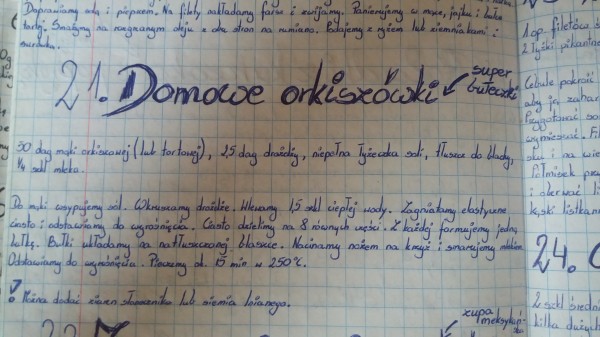 Doprawiamy solą i pieprzem. Na filety nakładamy farsz i zwijamy. Panierujemy w mące, jajku i bułce
tartej. Smażymy na rozgrzanym oleju z obu stron na rumiano. Podajemy z ryżem lub ziemniakami i
surówką.
21. Domowe orkiszówki
super
bułeczki
50 dag mąki orkiszowej (lub tortowej), 2,5 dag drożdży, niepełna łyżeczka soli, tłuszcz do blachy,
1/4 szkl mleka.
Do mąki wsypujemy sól. Wkruszamy drożdże. Wlewamy 1,5 szkl ciepłej wody. Zagniatamy elastyczne
ciasto i odstawiamy do wyrośnięcia. Ciasto dzielimy na 8 równych części. Z każdej formujemy jedną
bułkę. Bułki układamy na natłuszczonej blaszce. Nacinamy nożem na krzyż i smarujemy mlekiem.
Odstawiamy do wyrośnięcia. Pieczemy ok. 15 min w 250°C.
! Można dodać ziaren słonecznika lub siemia lnianego.
zupa
meksykań-
ska
1 op. filetów
2 łyżki
Cebulę pokroić
aby jej
Przygotować
wymieszać.
24.
2 szkl
kilka